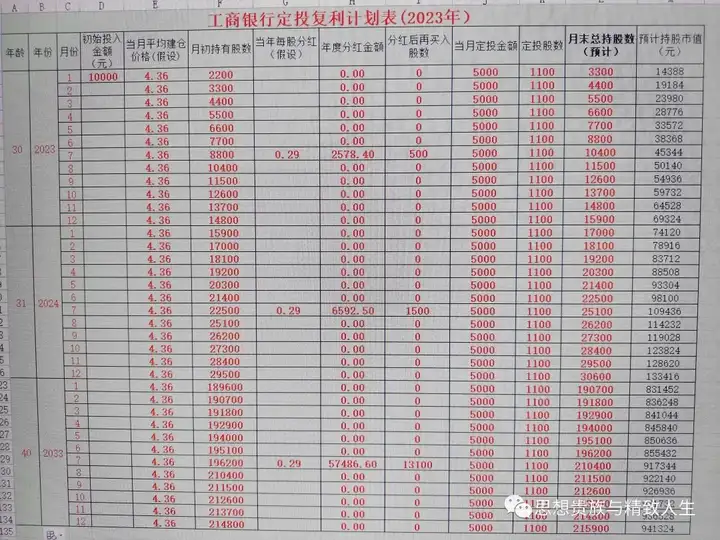 A B C D E F G H I J K L M
工商银行定投复利计划表(2023年)
年龄 年份 月份 初始投入金额(元) 当月平均建仓价格(假设) 月初持有股数 当年每股分红(假设) 年度分红金额 分红后再买入股数 当月定投金额 定投股数 月末总持股数(预计) 预计持股市值(元)
30 2023
1 10000 4.36 2200 0.00 0 5000 1100 3300 14388
2 4.36 3300 0.00 0 5000 1100 4400 19184
3 4.36 4400 0.00 0 5000 1100 5500 23980
4 4.36 5500 0.00 0 5000 1100 6600 28776
5 4.36 6600 0.00 0 5000 1100 7700 33572
6 4.36 7700 0.00 0 5000 1100 8800 38368
7 4.36 8800 0.29 2578.40 500 5000 1100 10400 45344
8 4.36 10400 0.00 0 5000 1100 11500 50140
9 4.36 11500 0.00 0 5000 1100 12600 54936
10 4.36 12600 0.00 0 5000 1100 13700 59732
11 4.36 13700 0.00 0 5000 1100 14800 64528
12 4.36 14800 0.00 0 5000 1100 15900 69324
31 2024
1 4.36 15900 0.00 0 5000 1100 17000 74120
2 4.36 17000 0.00 0 5000 1100 18100 78916
3 4.36 18100 0.00 0 5000 1100 19200 83712
4 4.36 19200 0.00 0 5000 1100 20300 88508
5 4.36 20300 0.00 0 5000 1100 21400 93304
6 4.36 21400 0.00 0 5000 1100 22500 98100
7 4.36 22500 0.29 6592.50 1500 5000 1100 25100 109436
8 4.36 25100 0.00 0 5000 1100 26200 114232
9 4.36 26200 0.00 0 5000 1100 27300 119028
10 4.36 27300 0.00 0 5000 1100 28400 123824
11 4.36 28400 0.00 0 5000 1100 29500 128620
12 4.36 29500 0.00 0 5000 1100 30600 133416
40 2033
1 4.36 189600 0.00 0 5000 1100 190700 831452
2 4.36 190700 0.00 0 5000 1100 191800 836248
3 4.36 191800 0.00 0 5000 1100 192900 841044
4 4.36 192900 0.00 0 5000 1100 194000 845840
5 4.36 194000 0.00 0 5000 1100 195100 850636
6 4.36 195100 0.00 0 5000 1100 196200 855432
7 4.36 196200 0.29 57486.60 13100 5000 1100 210400 917344
8 4.36 210400 0.00 0 5000 1100 211500 922140
9 4.36 211500 0.00 0 5000 1100 212600 926936
10 4.36 212600 0.00 0 5000
11 4.36 213700 0.00 0 5000 1100 214800 936528
12 4.36 214800 0.00 0 5000 1100 215900 941324
思想贵族与精致人生